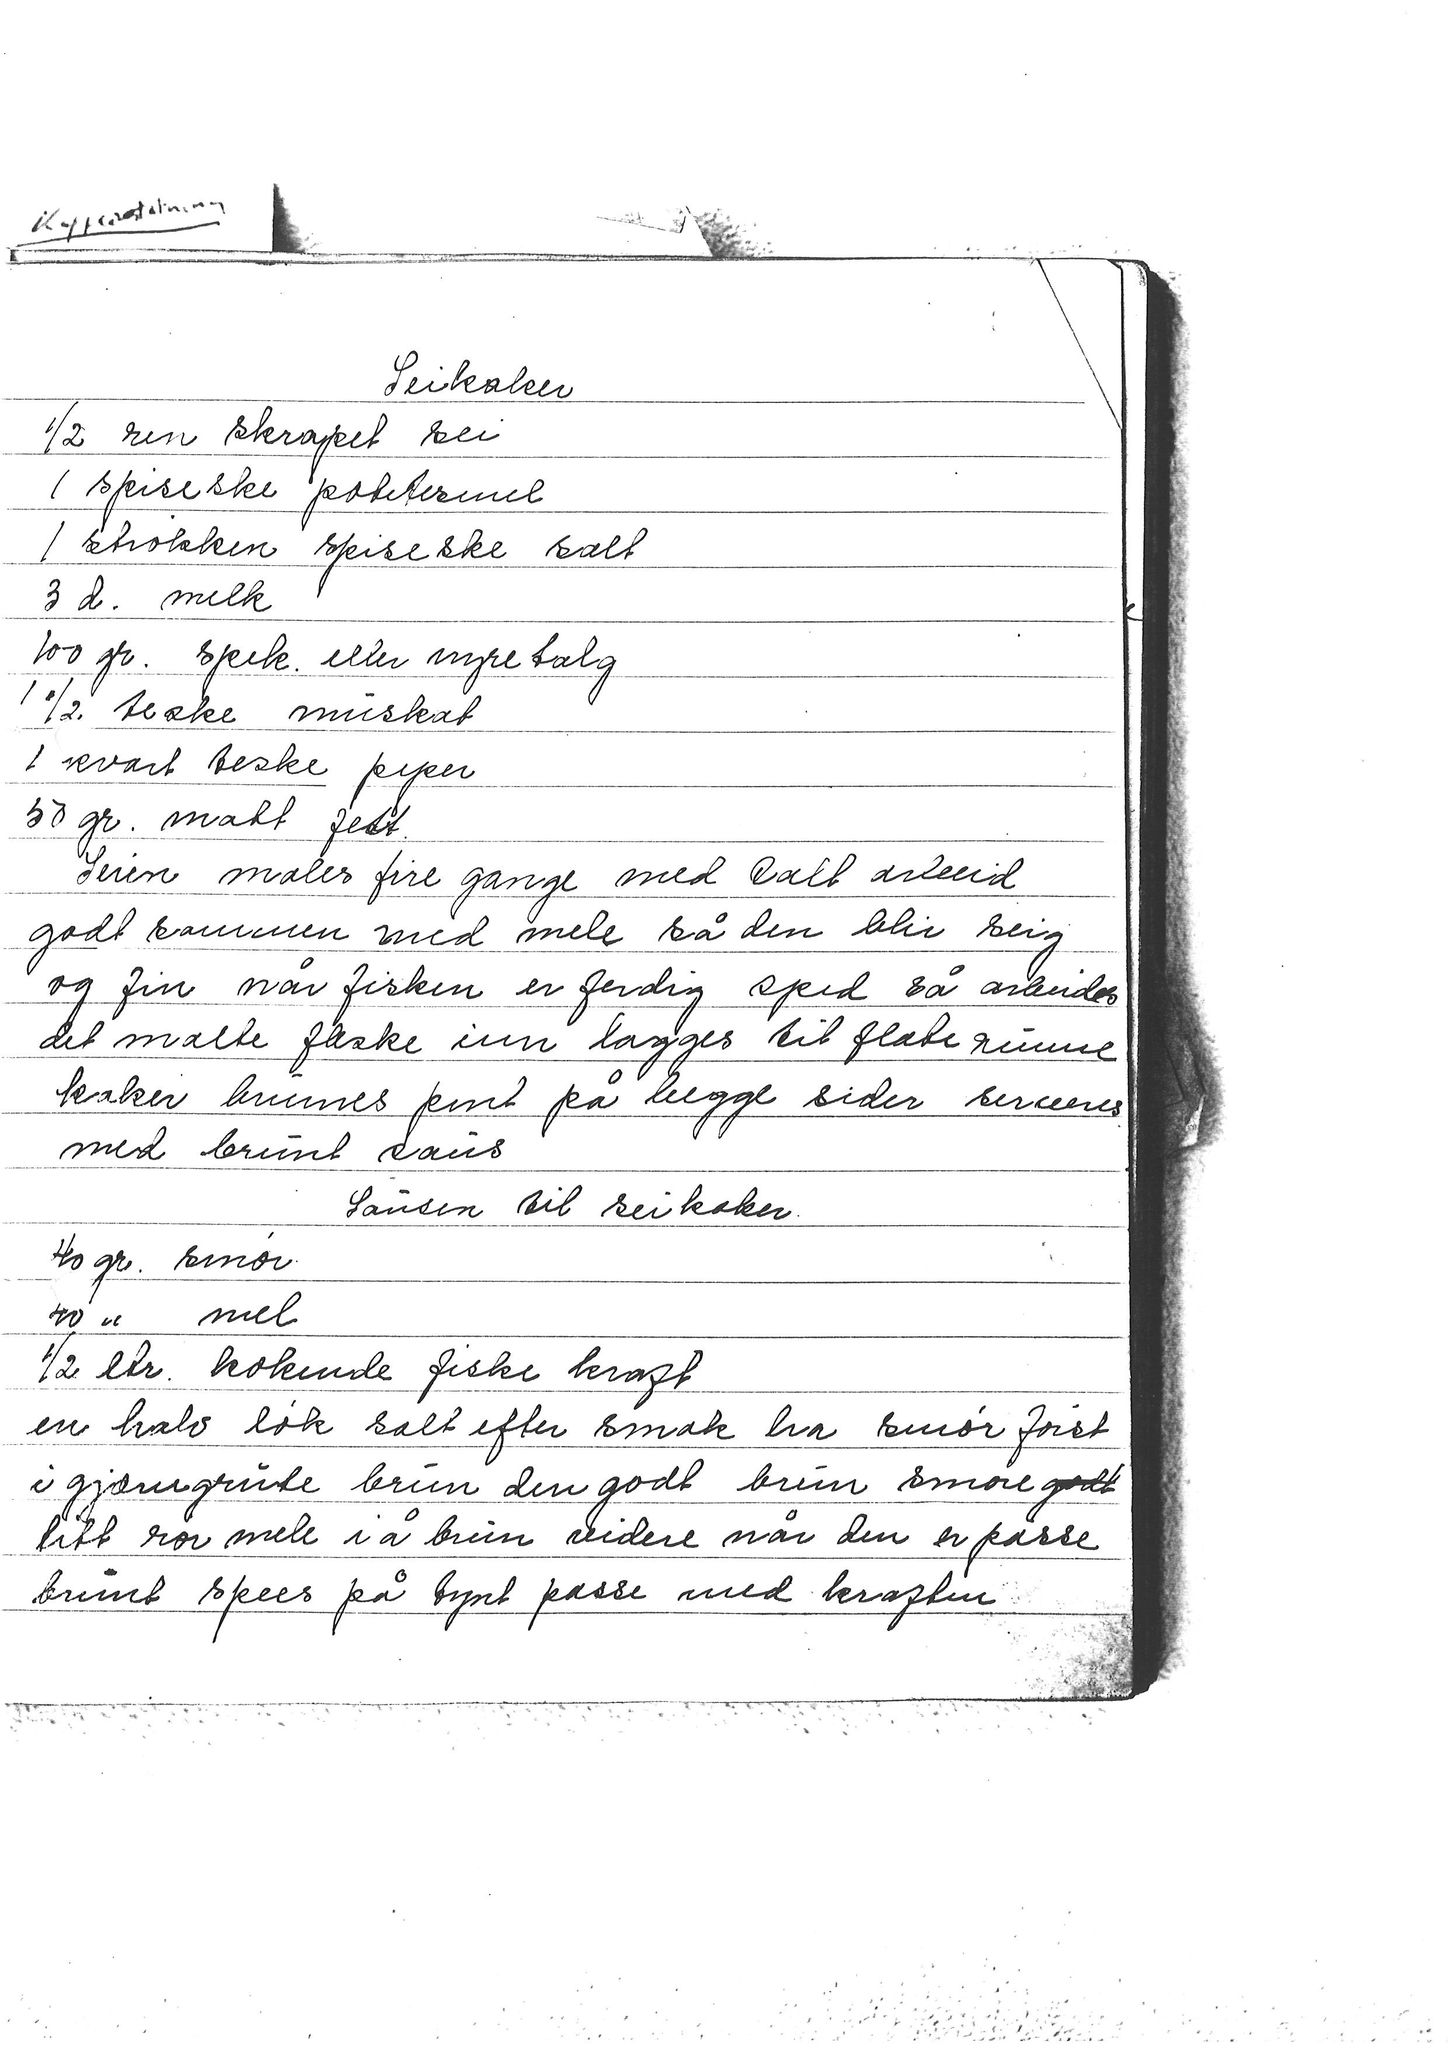 Seikaker
1/2 ren skrapet sei
1 spiseske potetesmel
1 strökken spiseske salt
3 d. melk
100 gr. spek. eller nyretalg
1 1/2 teske muskat
1 kvart teske peper
50 gr. malt fett.
Seien males fire gange med salt arbeid
godt sammen med mele så den blir seig
og fin når fisken er ferdig sped så arbeides
det malte fleske inn lagges til flate runne
kaker brunes pent på begge sider serveres
med brunt saus
Sausen til seikaker.
40 gr. smör
40 " mel
1/2 ltr. kokende fiske kraft
en halv lök salt efter smak ha smör förist
i gjærngrute brun den godt brun smöre godt
litt rör mele i å brun videre når den er passe
brunt spees på tynt passe med kraften